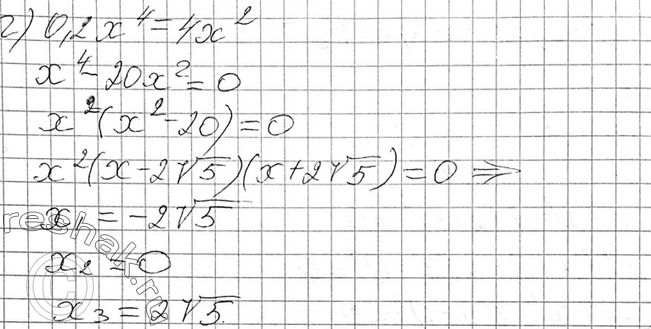 г) 0,2x⁴=4x²
x⁴-20x²=0
x²(x²-20)=0
x²(x-2√5)(x+2√5)=0 ⇒
x₁=-2√5
x₂=0
x₃=2√5.
reshak.ru
©